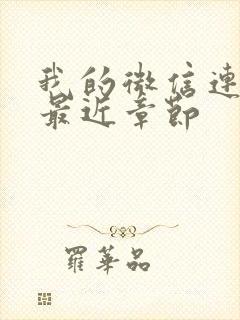 我的微信連
最近章節
羅華品